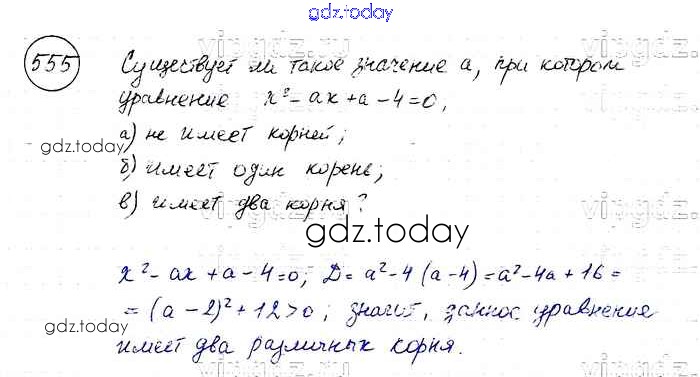 gdz.today
555 Существует ли такое значение a, при котором
уравнение x² - ax + a - 4 = 0,
а) не имеет корней;
gdz.today
б) имеет один корень;
в) имеет два корня?
gdz.today
x² - ax + a - 4 = 0; D = a² - 4 (a - 4) = a² - 4a + 16 =
= (a - 2)² + 12 > 0; значит, данное уравнение
gdz.today
имеет два различных корня.